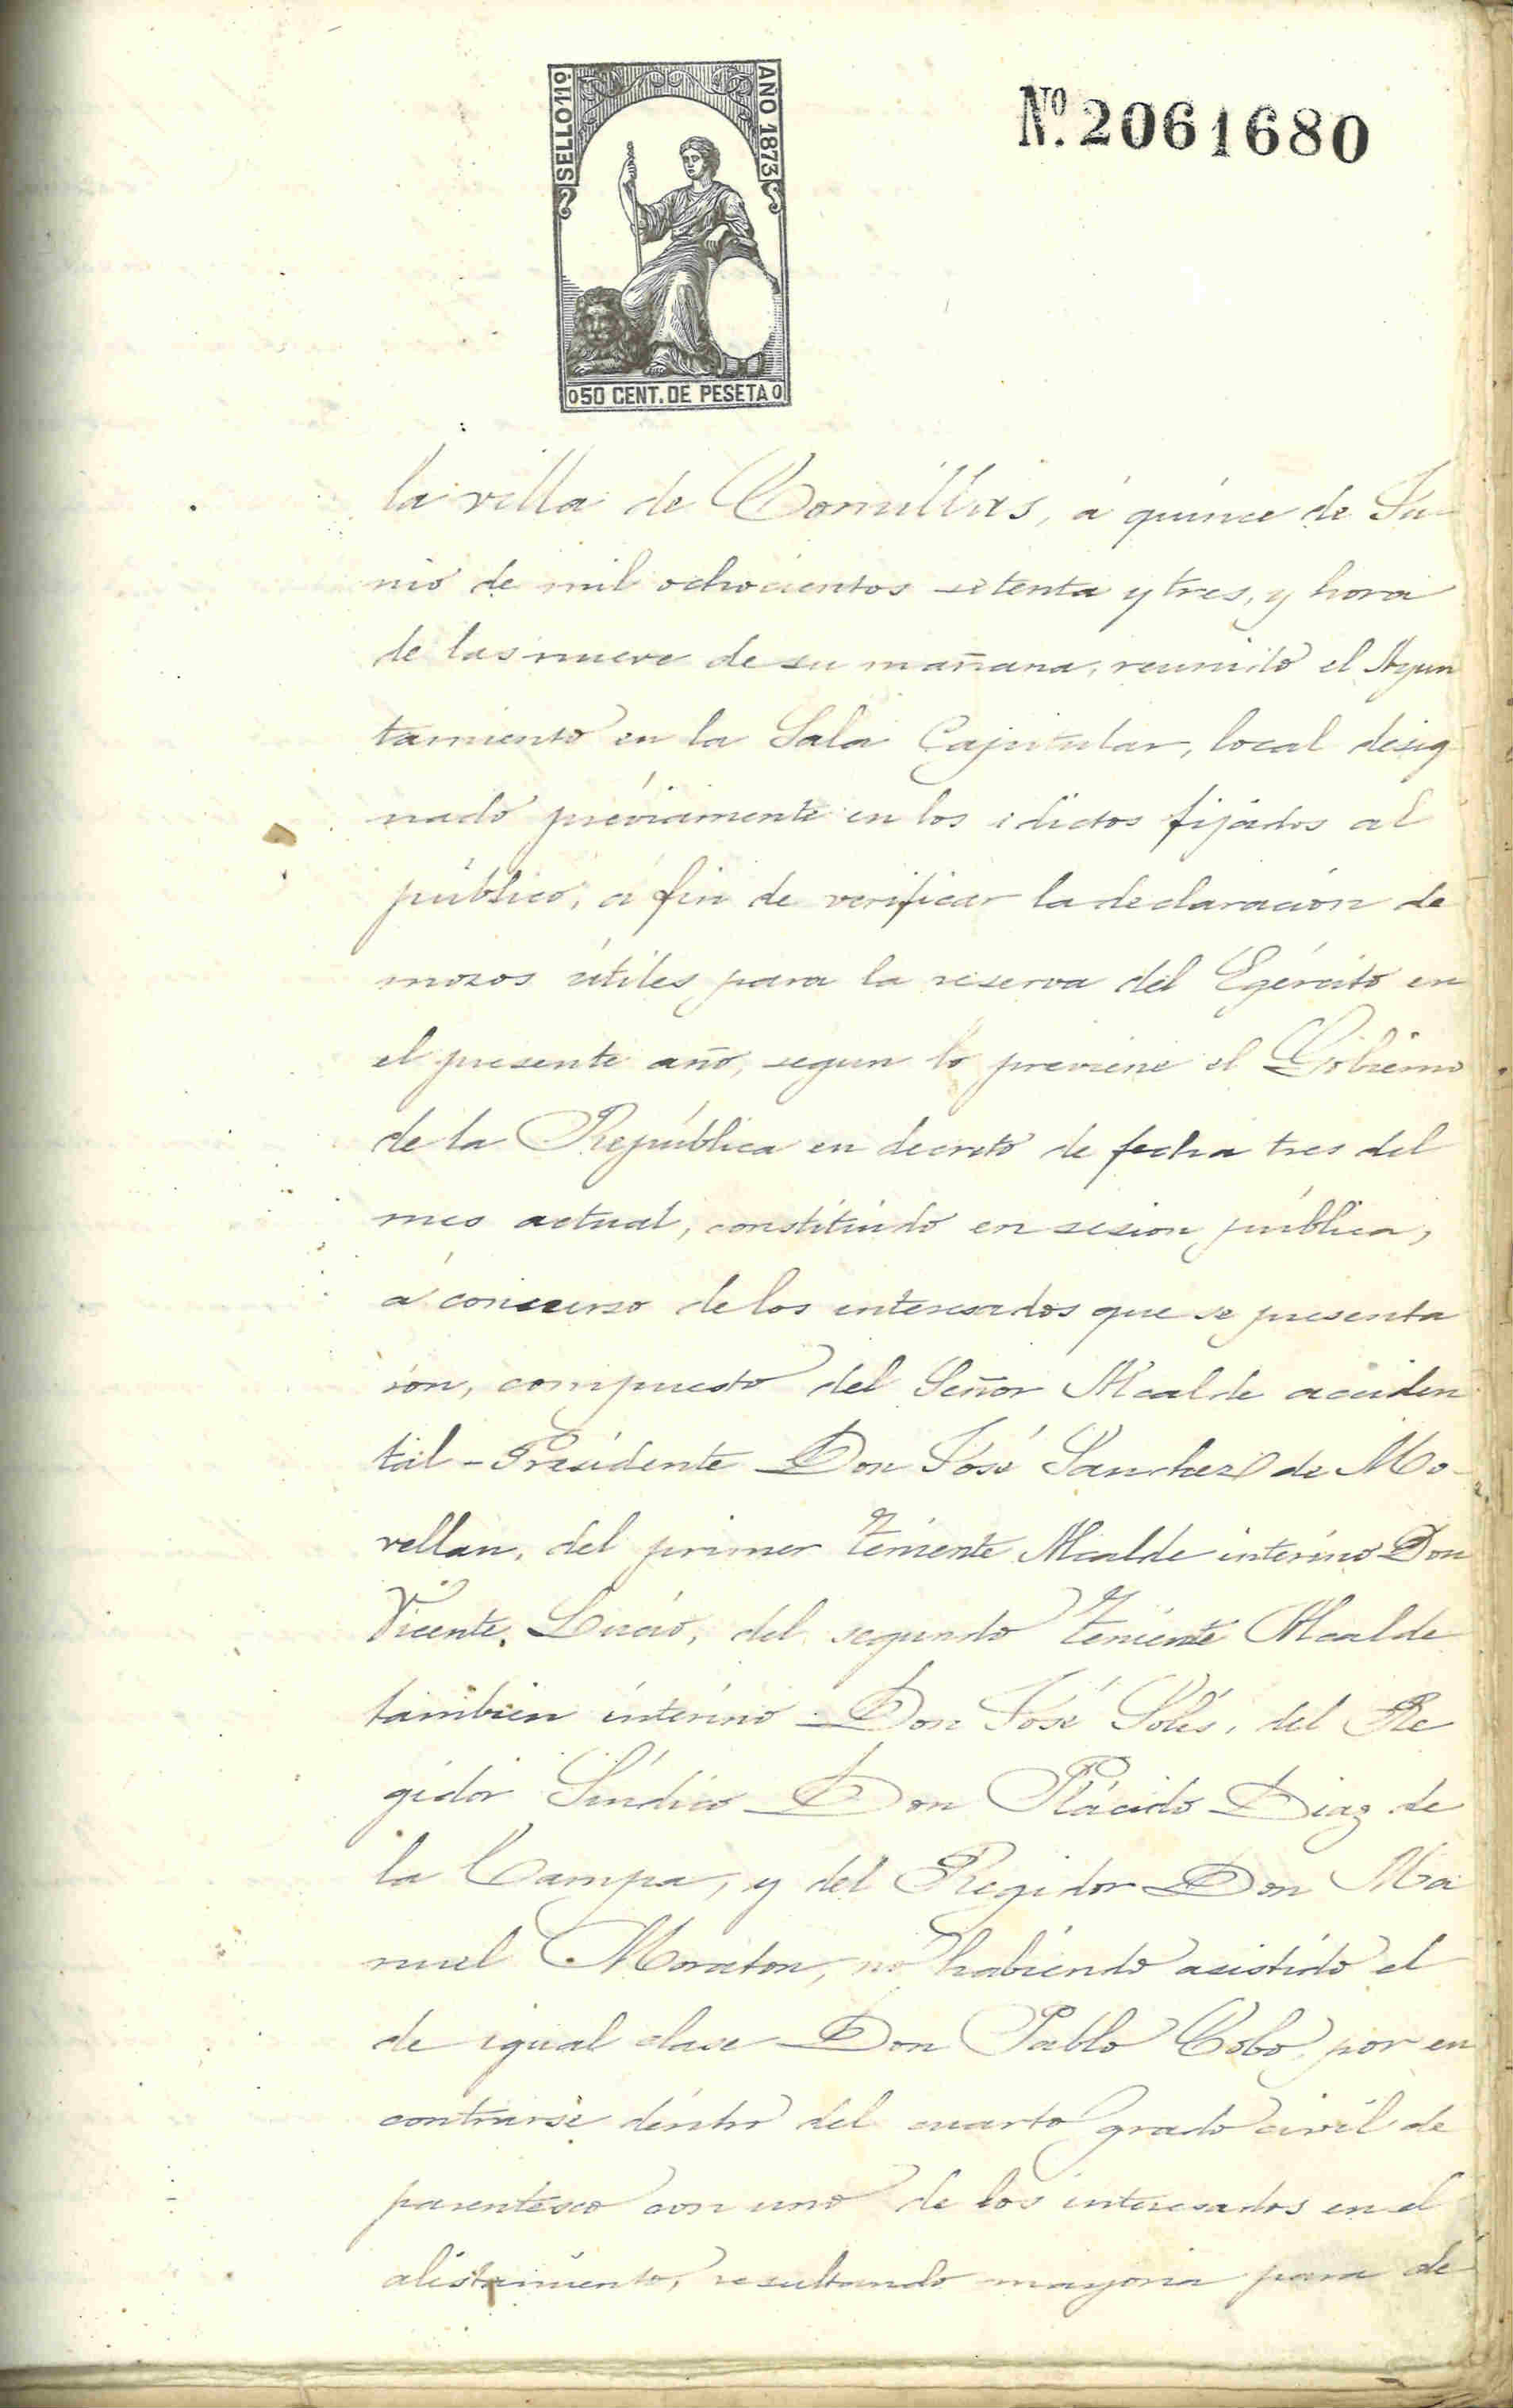 SELLO 11º
AÑO 1873
Nº. 2061680
0 50 CENT. DE PESETA 0
la villa de Comillas, á quince de Ju-
nio de mil ochocientos setenta y tres, y hora
de las nueve de su mañana, reunido el Ayun
tamiento en la Sala Capitular, local desig
nado préviamente en los edictos fijados al
público, á fin de verificar la declaracion de
mozos útiles para la reserva del Egército en
el presente año, segun lo previene el Gobierno
de la República en decreto de fecha tres del
mes actual, constituido en sesion pública,
á concurso de los interesados que se presenta
ron, compuesto del Señor Alcalde acciden
tal - Presidente Don José Sanchez de Mo-
vellan, del primer teniente Alcalde interino Don
Vicente Lucio, del segundo teniente Alcalde
tambien interino Don José Solís, del Re
gidor Síndico Don Plácido Diaz de
la Campa, y del Regidor Don Ma
nuel Moraton, no habiendo asistido el
de igual clase Don Pablo Cobo por en
contrarse dentro del cuarto grado civil de
parentesco con uno de los interesados en el
alistamiento, resultando mayoria para de